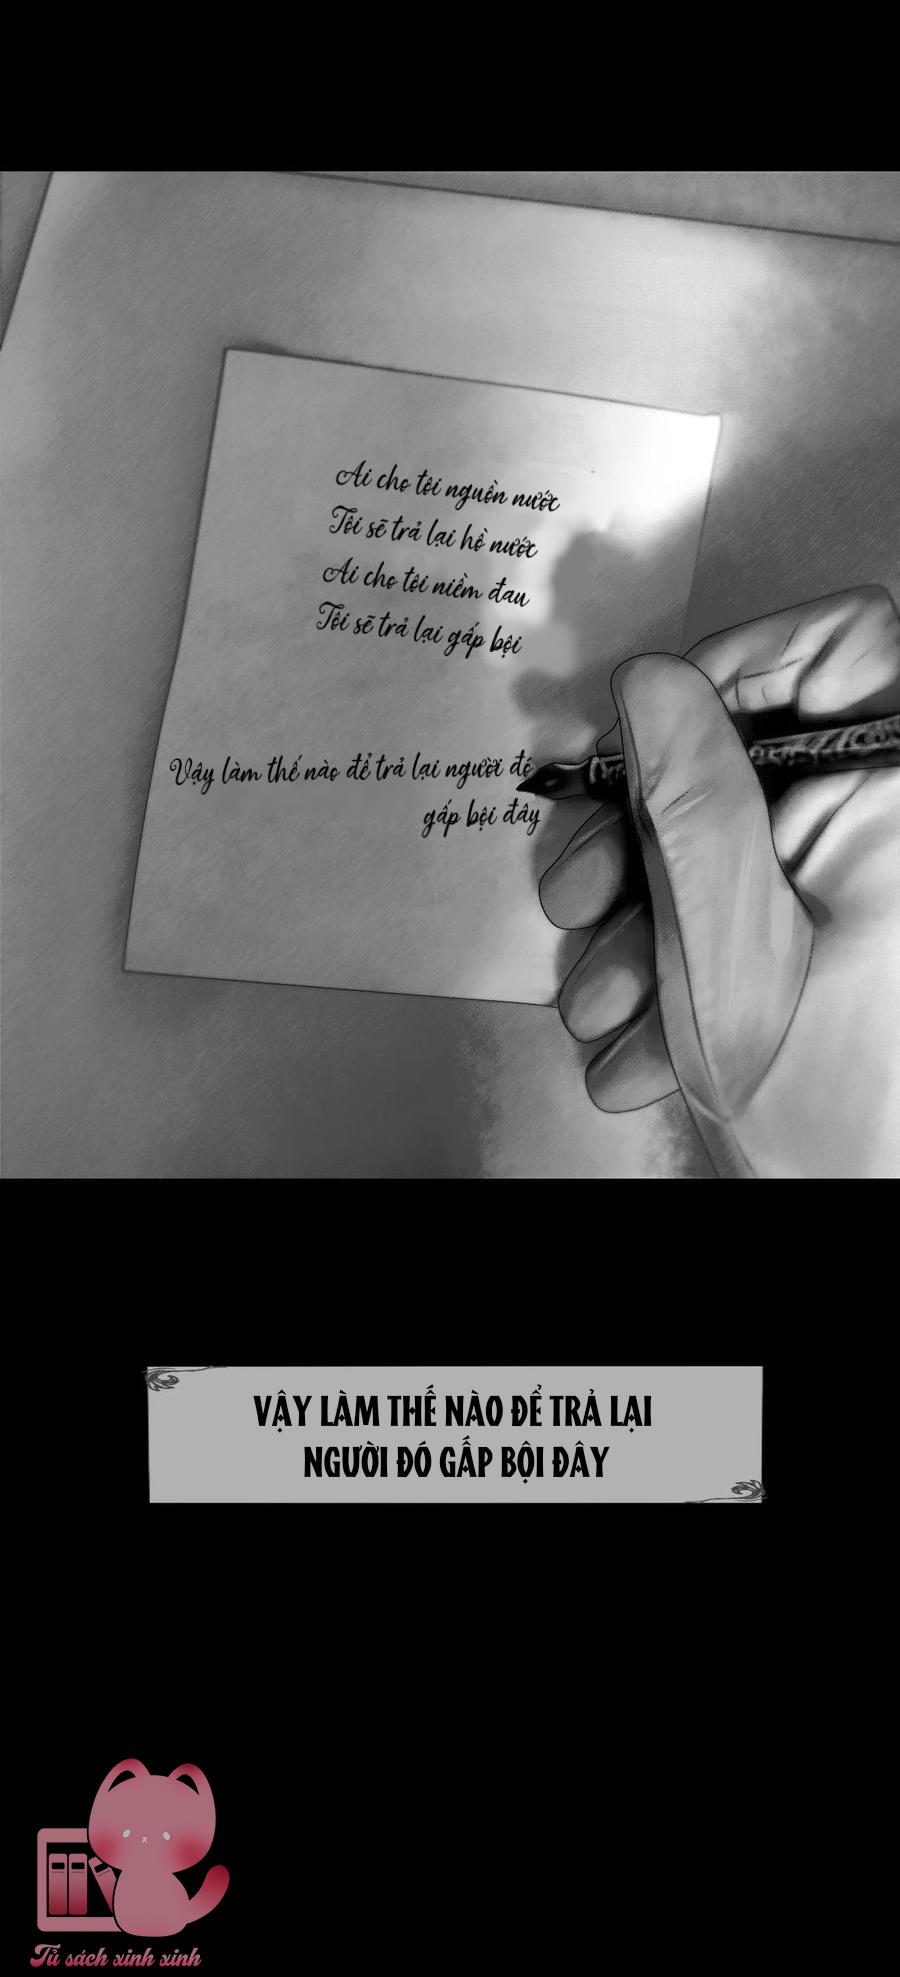 Ai cho tôi nguồn nước
Tôi sẽ trả lại hồ nước
Ai cho tôi niềm đau
Tôi sẽ trả lại gấp bội
Vậy làm thế nào để trả lại người đó
gấp bội đây
VẬY LÀM THẾ NÀO ĐỂ TRẢ LẠI
NGƯỜI ĐÓ GẤP BỘI ĐÂY
Tủ sách xinh xinh